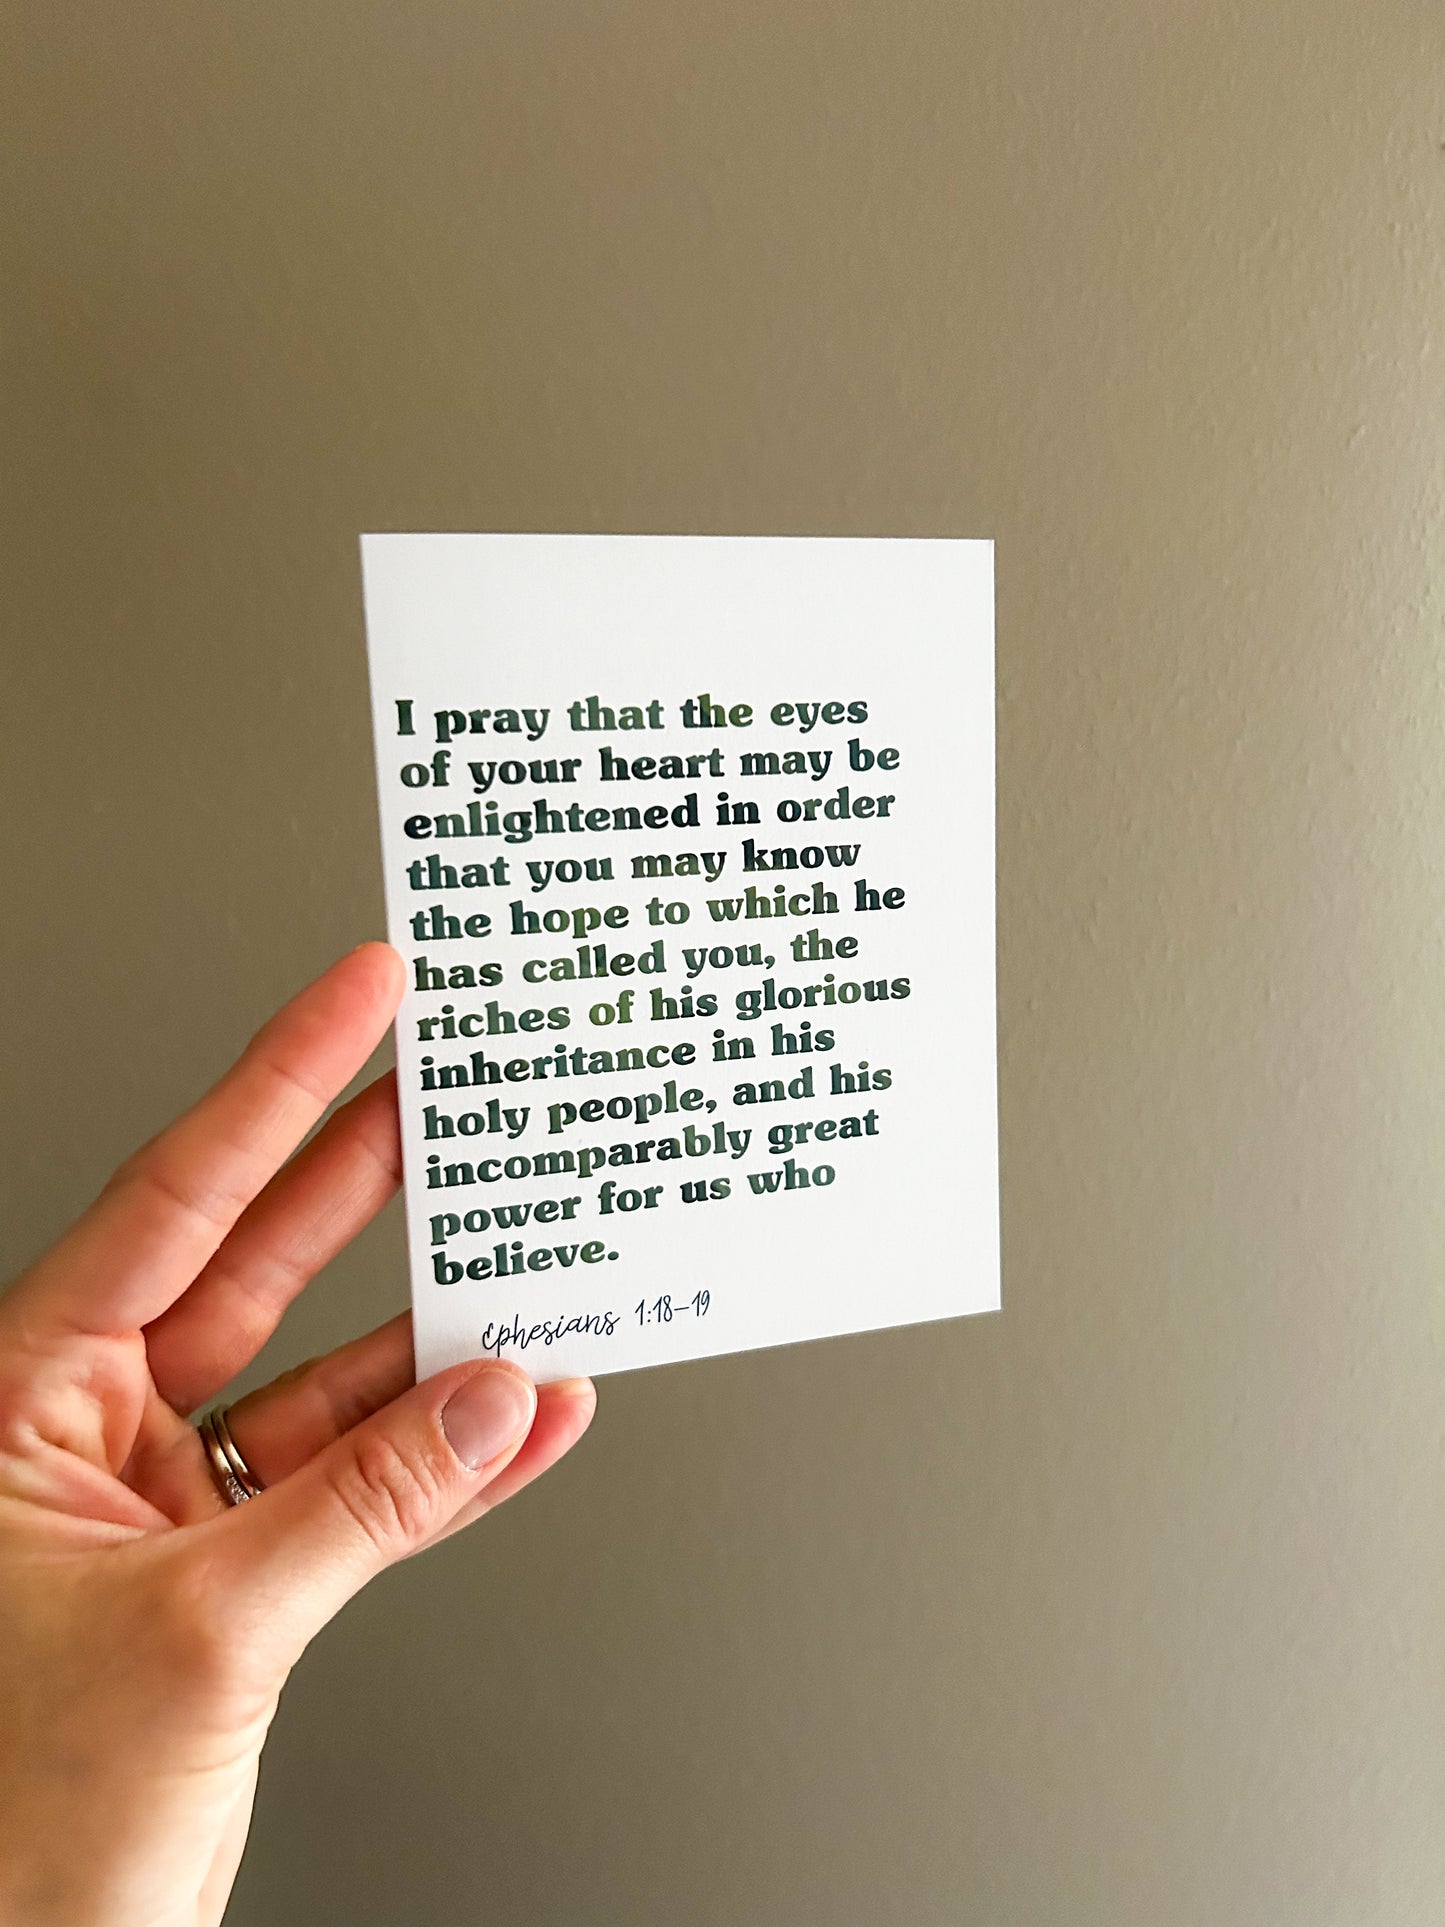 I pray that the eyes
of your heart may be
enlightened in order
that you may know
the hope to which he
has called you, the
riches of his glorious
inheritance in his
holy people, and his
incomparably great
power for us who
believe.
Ephesians 1:18–19